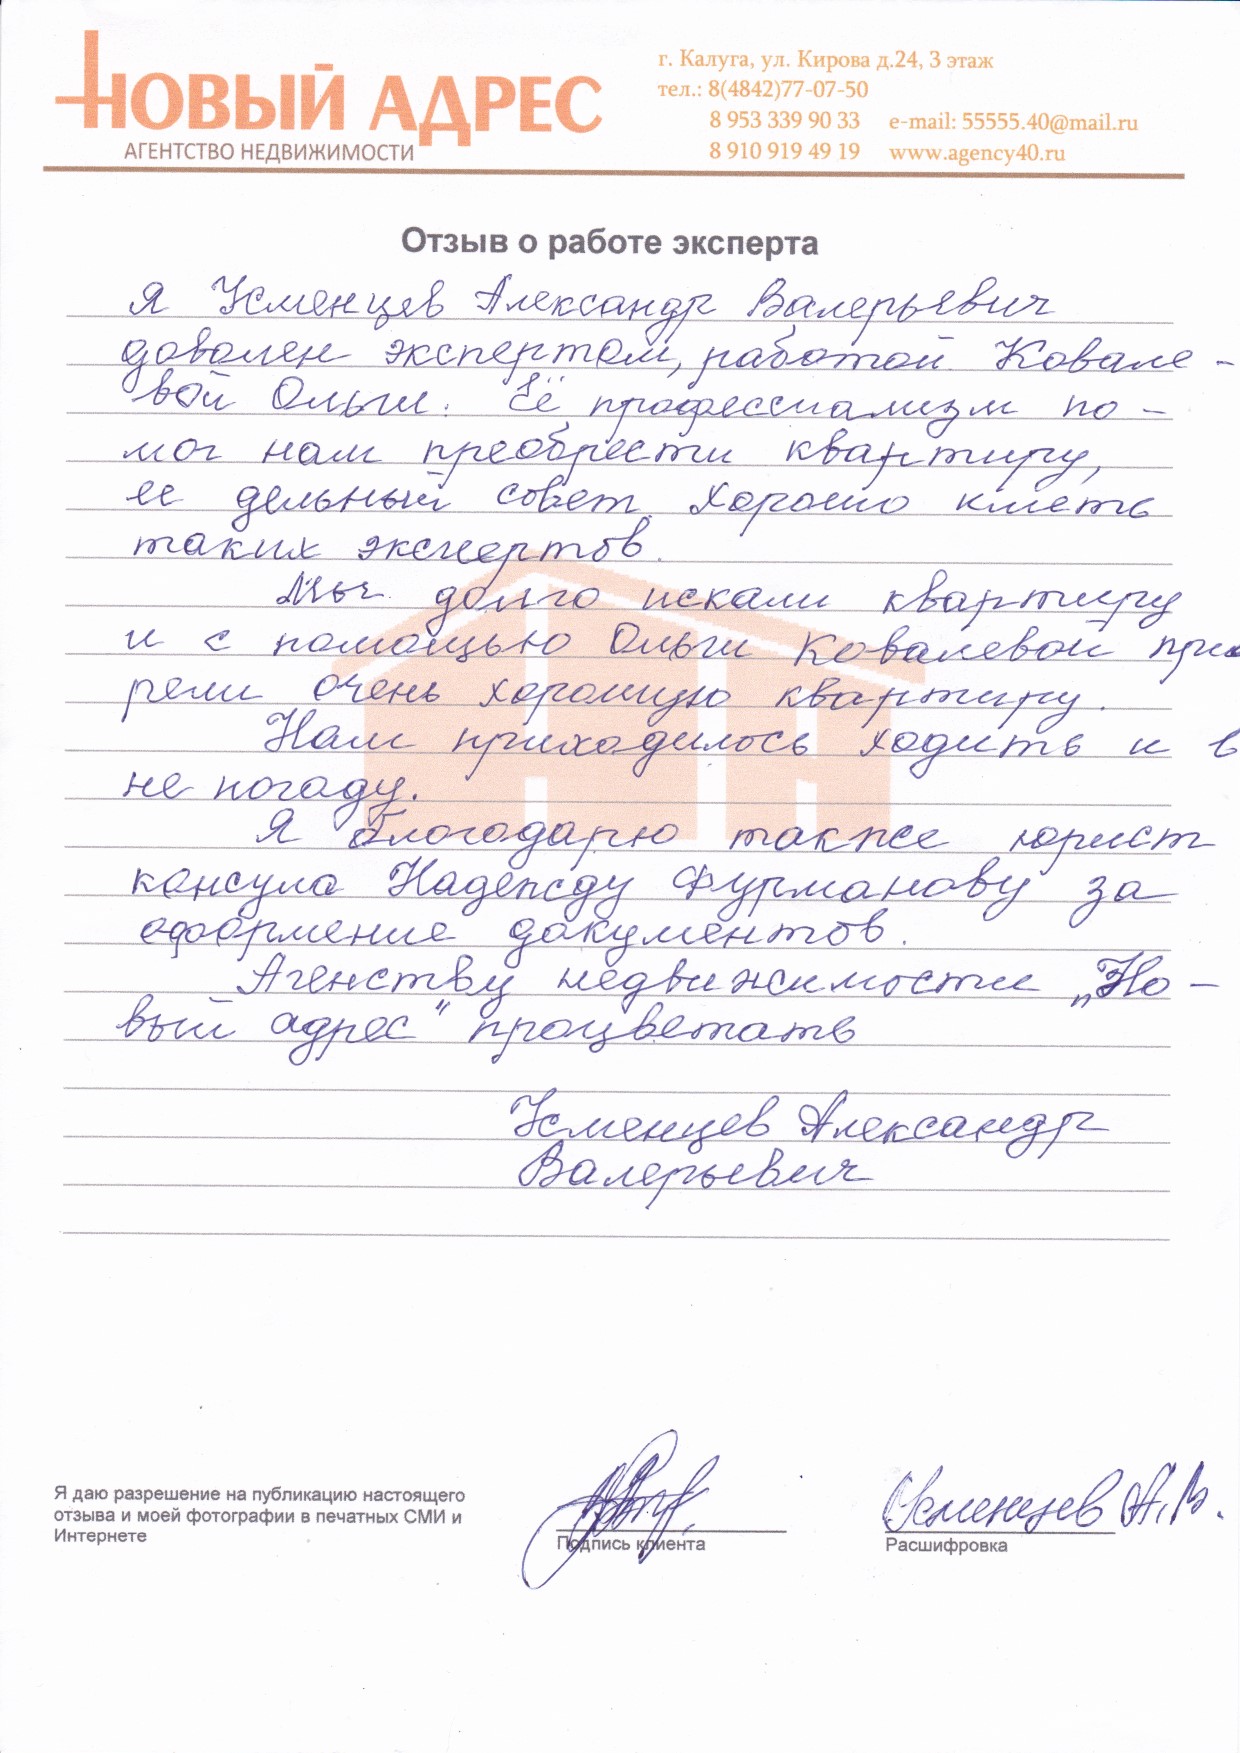 НОВЫЙ АДРЕС
АГЕНТСТВО НЕДВИЖИМОСТИ
г. Калуга, ул. Кирова д.24, 3 этаж
тел.: 8(4842)77-07-50
8 953 339 90 33 e-mail: 55555.40@mail.ru
8 910 919 49 19 www.agency40.ru
Отзыв о работе эксперта
Я Усменцев Александр Валерьевич
доволен экспертом, работой Ковале-
вой Ольги. Её профессиализм по-
мог нам преобрести квартиру,
ее дельный совет. Хорошо иметь
таких экспертов.
Мы долго искали квартиру
и с помощью Ольги Ковалевой прио
рели очень хорошую квартиру.
Нам приходилось ходить и в
не погаду.
Я благодарю также юрист
кансула Надежду Фурманову за
оформление документов.
Агенству недвижимости „Но-
вый адрес“ процветать
Усменцев Александр
Валерьевич
Я даю разрешение на публикацию настоящего
отзыва и моей фотографии в печатных СМИ и
Интернете
Подпись клиента
Усменцев А.В.
Расшифровка